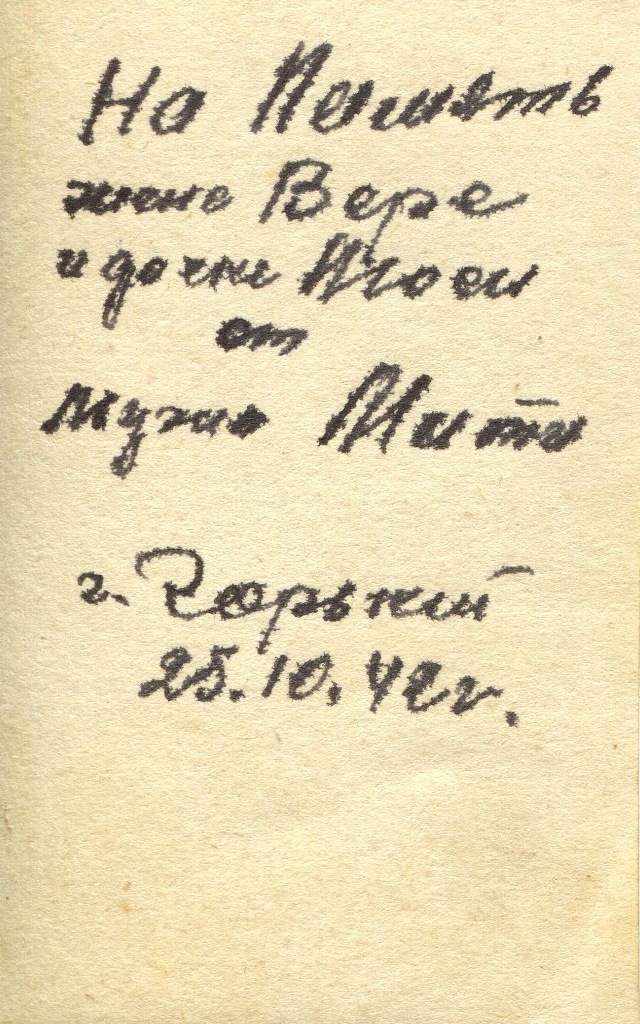 На Память
жене Вере
и дочке Нюси
от
мужа Мити
г. Горький
25.10.42г.